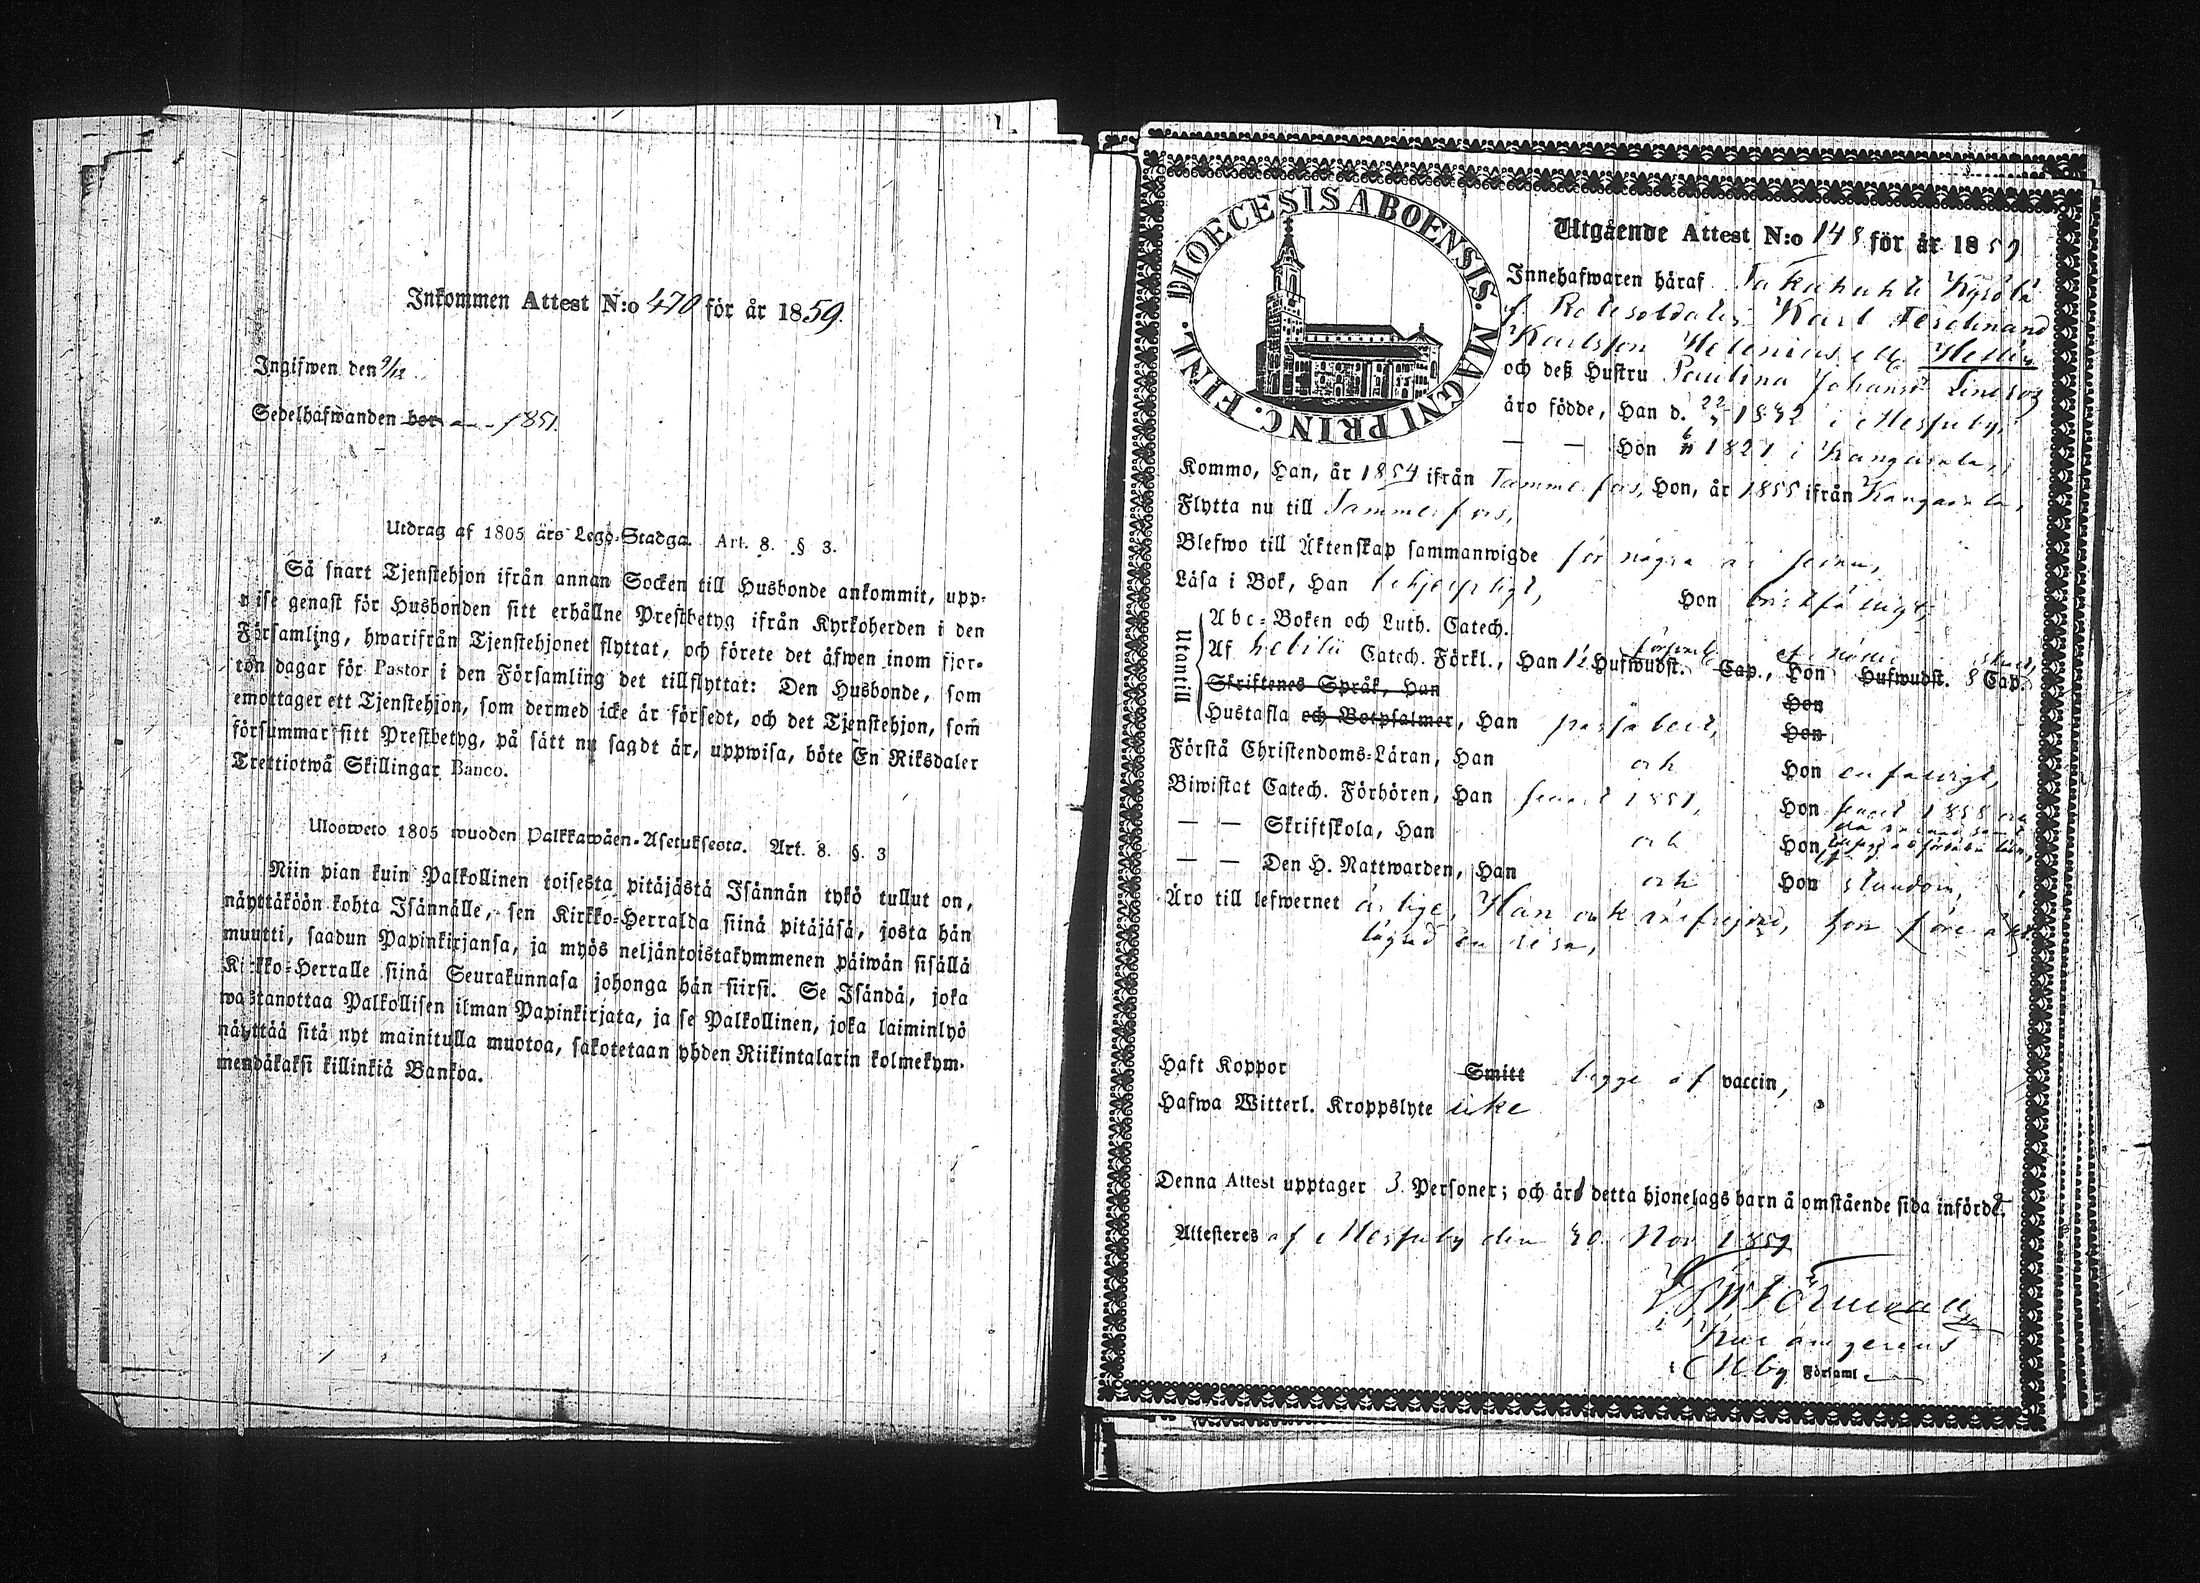 Inkommen Attest N:o 470 för år 1859.
Ingifwen den 9/12
Sedelhafwanden bor 1851.
Utdrag af 1805 års Lego-Stadga. Art. 8. § 3.
Så snart Tjenstehjon ifrån annan Socken till Husbonde ankommit, upp-
wise genast för Husbonden sitt erhållne Prestbetyg ifrån Kyrkoherden i den
Församling, hwarifrån Tjenstehjonet flyttat, och förete det äfwen inom fjor-
ton dagar för Pastor i den Församling det tillflyttat: Den Husbonde, som
emottager ett Tjenstehjon, som dermed icke är försedt, och det Tjenstehjon, som
försummar sitt Prestbetyg, på sätt nu sagdt är, uppwisa, böte En Riksdaler
Trettiotwå Skillingar Banco.
Uloosweto 1805 wuoden Palkkawäen-Asetuksesta. Art. 8. §. 3
Niin pian kuin Palkollinen toisesta pitäjästä Isännän tykö tullut on,
näyttäköön kohta Isännälle, sen Kirkko-Herralda siinä pitäjäsä, josta hän
muutti, saadun Papinkirjansa, ja myös neljäntoistakymmenen päiwän sisällä
Kirkko-Herralle siinä Seurakunnasa johonga hän siirsi. Se Isändä, joka
wastanottaa Palkollisen ilman Papinkirjata, ja se Palkollinen, joka laiminlyö
näyttää sitä nyt mainitulla muotoa, sakotetaan yhden Riikintalarin kolmekym-
mendäkaksi killinkiä Bankoa.
DIOECESIS ABOENSIS. MAGNI PRINC. FINL.
Utgående Attest N:o 148 för år 1859
Innehafwaren häraf
f. Rotesoldaten Karl Ferdinand
Karlsson Helenius ell. Hellén
och deß Hustru Paulina Johansd
äro födde, Han d. 22 1832 i Messuby,
— — Hon 1821 i Kangasala,
Kommo, Han, år 1854 ifrån Tammerfors, Hon, år 1855 ifrån Kangasala,
Flytta nu till Tammerfors,
Blefwo till Äktenskap sammanwigde för några år sedan,
Läsa i Bok, Han behjelpligt, Hon bristfälligt,
Utantill
Abc-Boken och Luth. Catech.
Af Catech. Förkl., Han 12 Hufwudst. Cap., Hon Hufwudst. 8 Cap.
Skriftenes Språk, Han Hon
Hustafla och Botpsalmer, Han Hon
Förstå Christendoms-Läran, Han och Hon enfaldigt,
Biwistat Catech. Förhören, Han senast 1851, Hon senast 1858
— — Skriftskola, Han och Hon
— — Den H. Nattwarden, Han och Hon stundom,
Äro till lefwernet ärlige, Han ock hon
lägrad en resa,
Haft Koppor Smitt begge af vaccin,
Hafwa Witterl. Kroppslyte icke
Denna Attest upptager 3 Personer; och äro detta hjonelags barn å omstående sida införde.
Attesteres af Messuby den 30 Nov. 1859
i Mby Församl